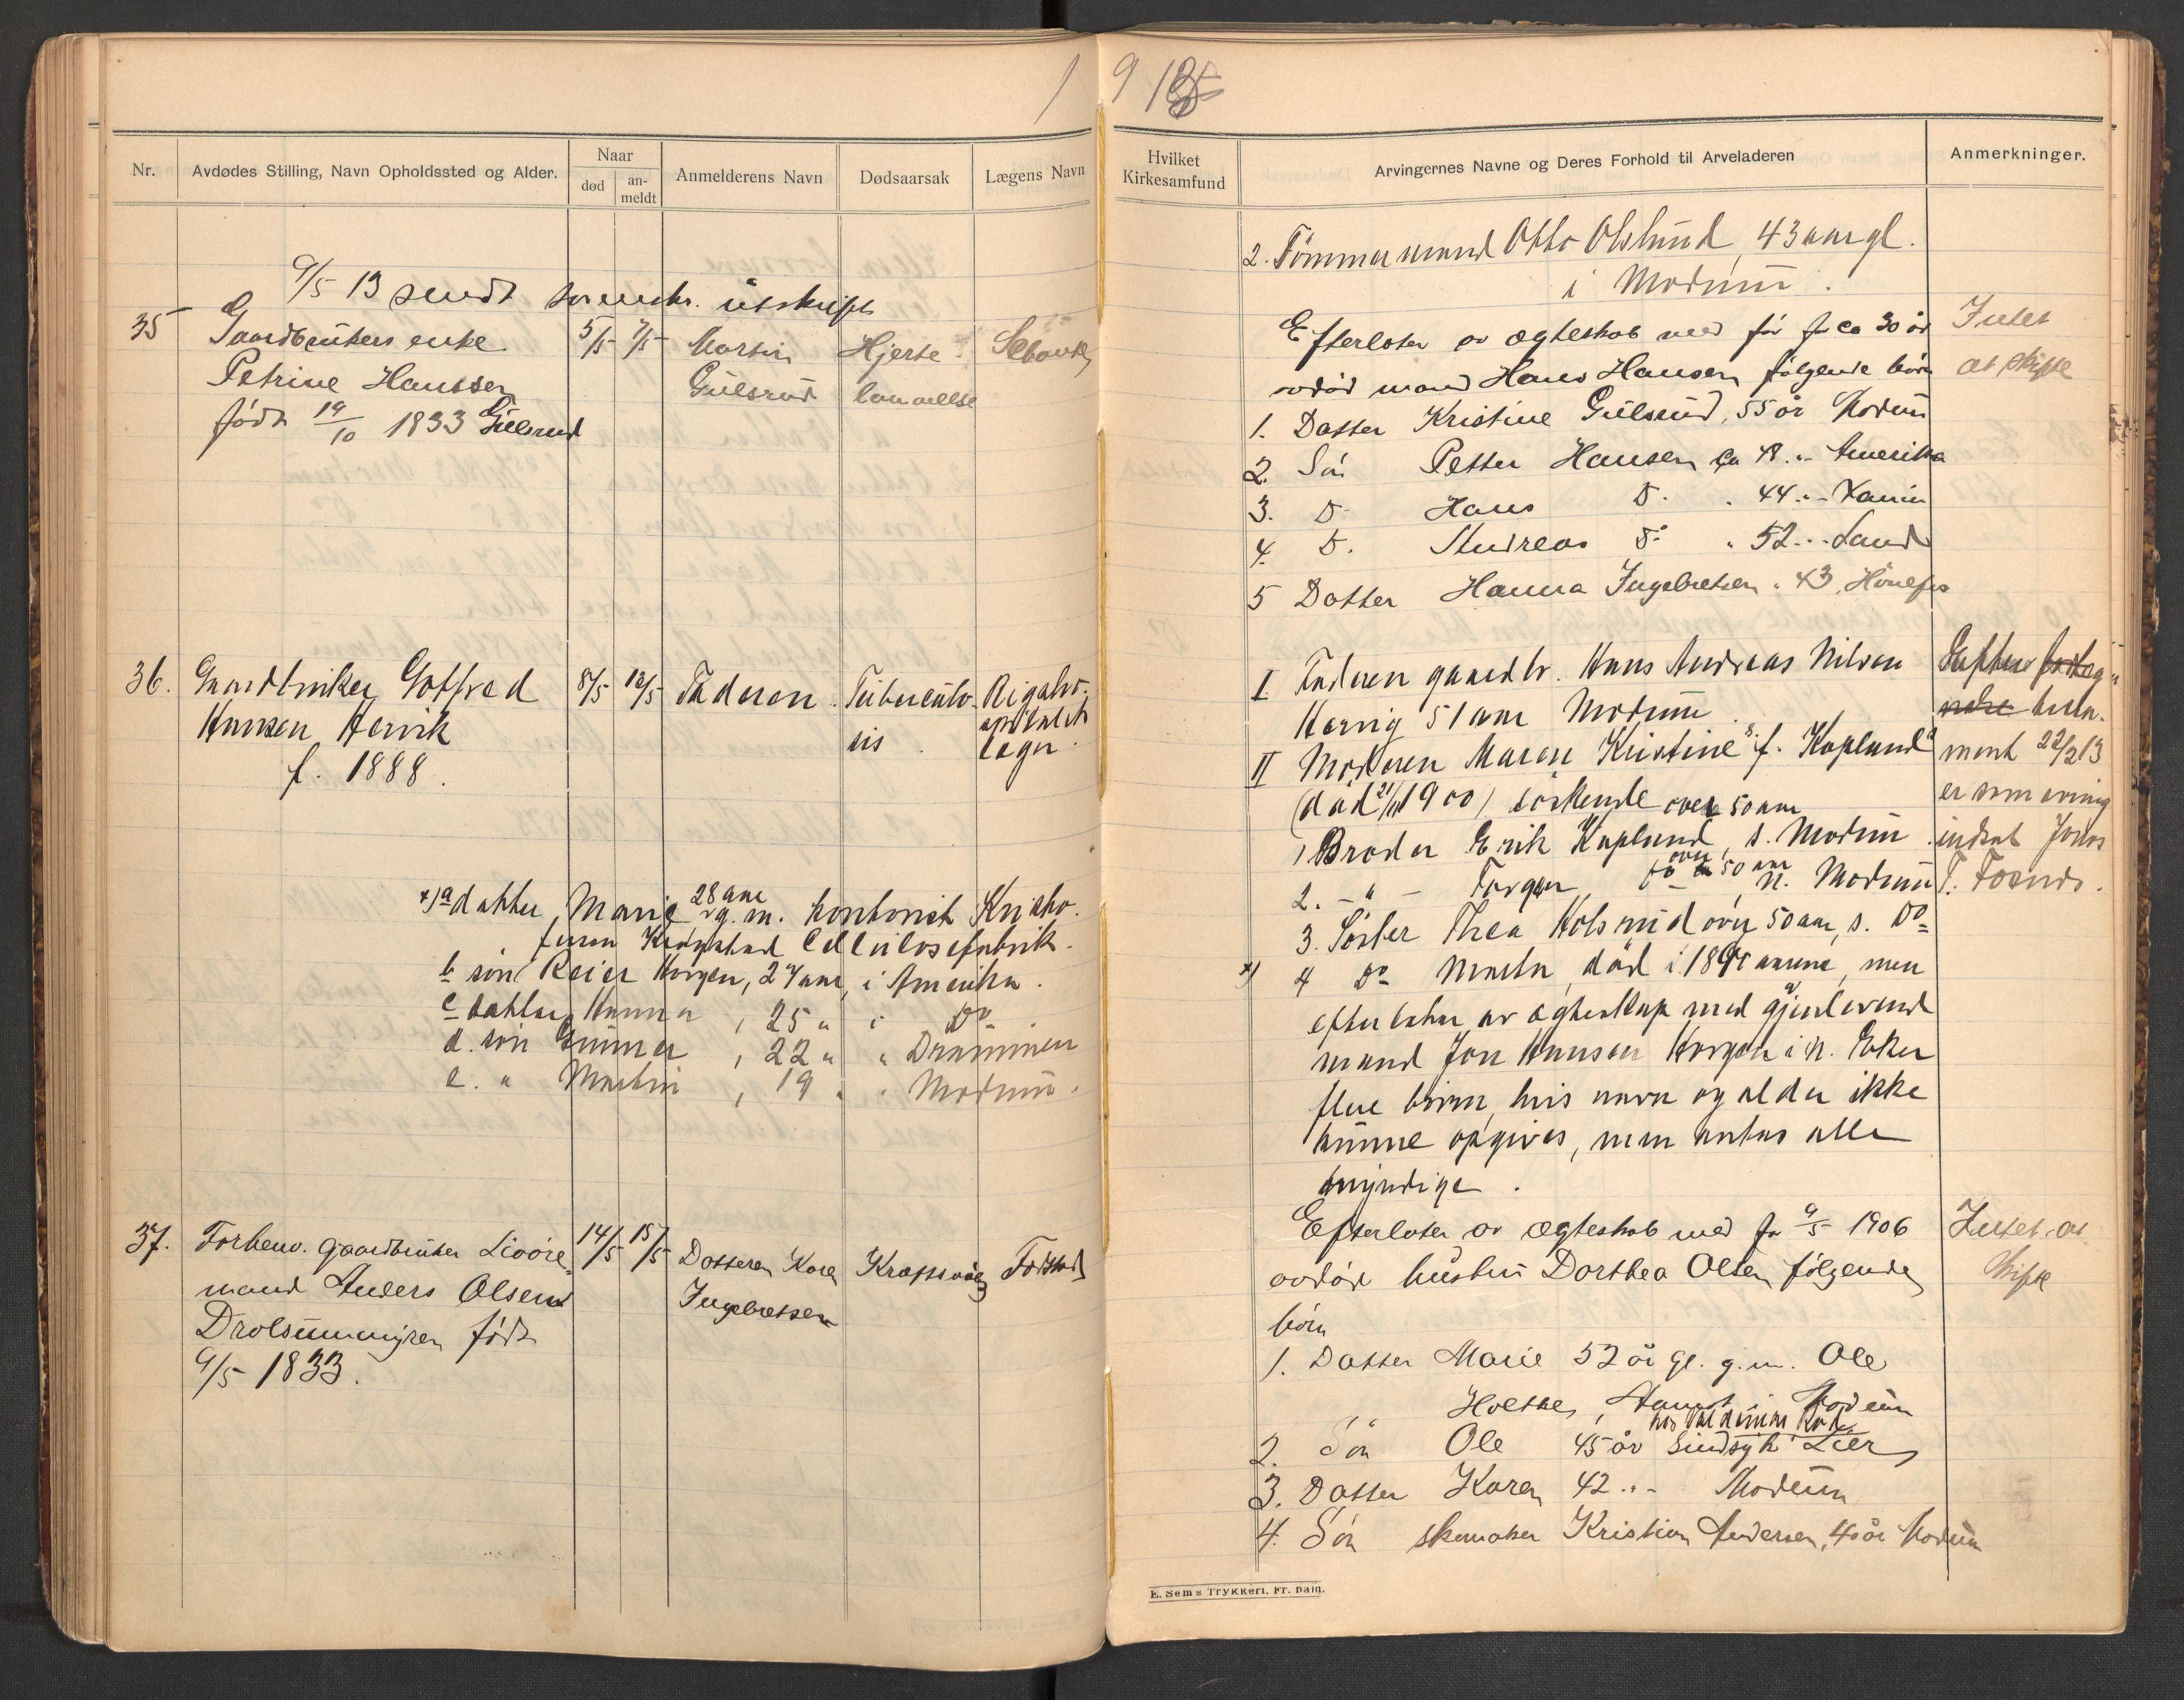 1913
Nr.
Avdødes Stilling, Navn Opholdssted og Alder.
Naar
død
an-
meldt
Anmelderens Navn
Dødsaarsak
Lægens Navn
9/5 13 sendt sorenskr. utskrift
35
Gaardbrukers enke
Petrine Hanssen
født 19/10 1833 Gulsrud
5/5 7/5
Martin
Gulsrud
Hjerte-
lammelse
36.
Gaardbruker Gotfred
Hansen Hervik
f. 1888.
8/5 12/5
Faderen.
Tuberculo-
sis.
Rigsho-
spitalets
læger.
x) a datter, Marie 28 aar g. m. kontorist Kristo-
fersen Krogstad Cellulosefabrik.
b søn Reier Horgen, 27 aar, i Amerika.
c datter Hanna, 25 " i Do
d. søn Gunnar, 22 " " Drammen
e. " Martin, 19 " " Modum.
37.
Forhenv. gaardbruker Livøre-
mand Anders Olsen
Drolsummyren født
9/5 1833.
14/5 15/5
Datteren Karen
Ingebretsen
Hvilket
Kirkesamfund
Arvingernes Navne og Deres Forhold til Arveladeren
Anmerkninger.
2. Tømmermand Otto Olslund, 43 aar gl.
i Modum.
Efterlater av ægteskab med før for ca 30 år
avdød mand Hans Hansen følgende børn
1. Datter Kristine Gulsrud, 55 år Modum
2. Søn Petter Hansen ca 48 "- Amerika
3. D- Hans D- . 44 "-
4. D. Andreas Do " 52 "- Land
5 Datter Hanna Ingebretsen " 43, Hønefos
Intet
at skifte
I. Faderen gaardbr. Hans Andreas Nilsen
Hervig 51 aar Modum.
II Moderen Maren Kristine f. Kopland
(død 21/11 1900) søskende over 50 aar
1 Broder Erik Kopland, s. Modum.
2. - " - Torger, over 50 aar n. Modum
3. Søster Thea Holsrud over 50 aar, s. Do
x) 4 Do Marta, død i 1890 aarene, men
efterlater av ægteskap med gjenlevende
mand Jon Hansen Horgen i Ø. Eker
flere børn, hvis navn og alder ikke
kunne opgives, men antas alle
myndige.
testa-
ment 22/2 13
er som arving
indsat Jonas
T. Fosnes.
Efterlater av ægteskab med før 9/5 1906
avdøde hustru Dorthea Olsen følgende
børn
1. Datter Marie 52 år gl. g. m. Ole
Modum
2. Søn Ole 45 år sindssyk hos Valdemar Lier
3. Datter Karen 42 "- Modum
4. Søn skomaker Kristian Andersen, 40 år Modum
Intet at
skifte
E. Sem's Trykkeri, Fr. hald.